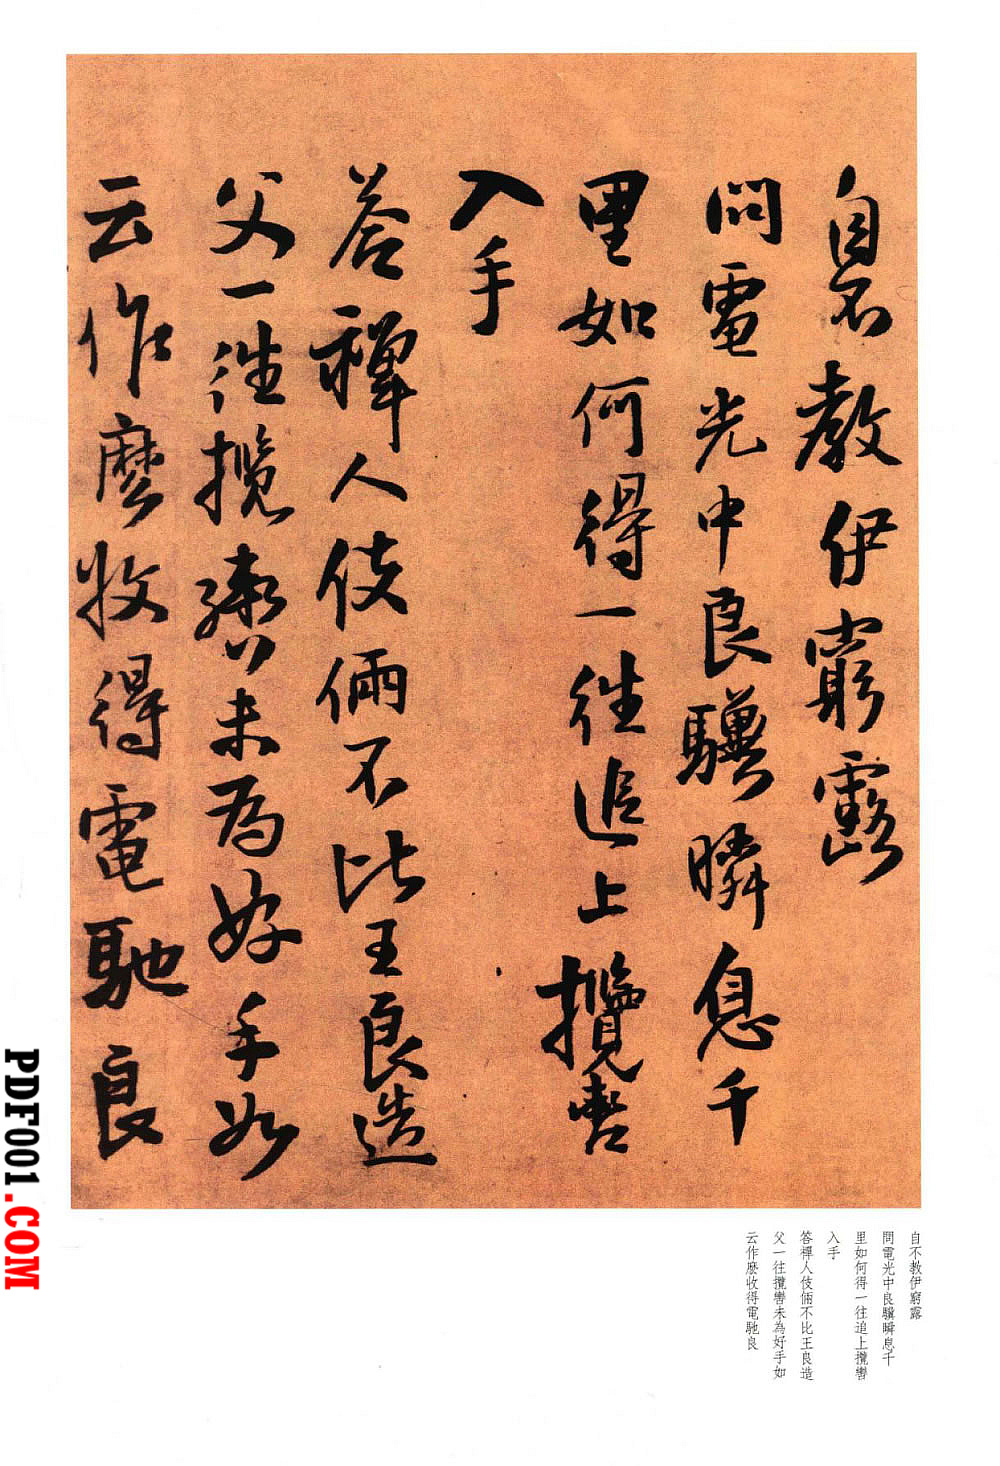 自不教伊窮露
問電光中良驥瞬息千
里如何得一往追上攬轡
入手
答禪人伎倆不比王良造
父一往攬轡未為好手如
云作麼收得電馳良
自不教伊窮露
問電光中良驥瞬息千
里如何得一往追上攬轡
入手
答禪人伎倆不比王良造
父一往攬轡未為好手如
云作麼收得電馳良
PDF001.COM